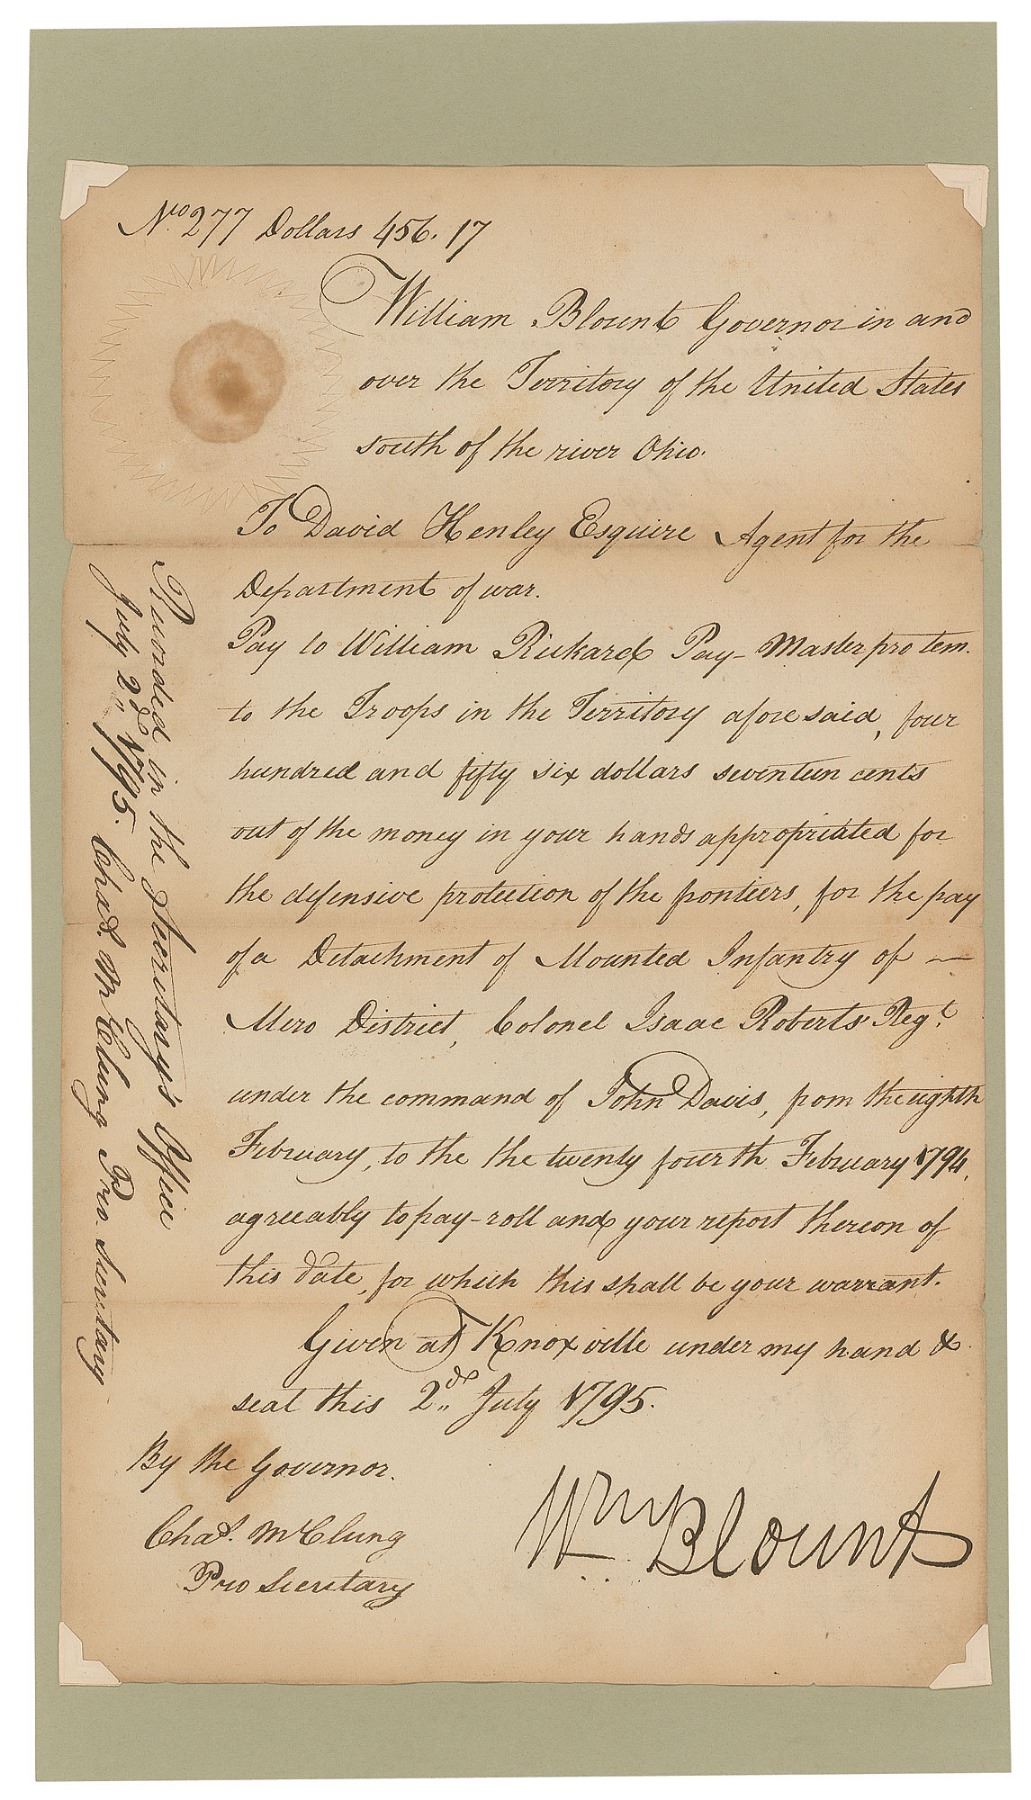 No 277 Dollars 456.17
William Blount Governor in and
over the Territory of the United States
south of the river Ohio.
To David Henley Esquire Agent for the
Department of war.
Pay to William Rickard Pay-Master pro tem.
to the Troops in the Territory afore said, four
hundred and fifty six dollars seventeen cents
out of the money in your hands appropriated for
the defensive protection of the frontiers, for the pay
of a Detachment of Mounted Infantry of —
Mero District, Colonel Isaac Roberts' Regt.
under the command of John Davis, from the eighth
February, to the the twenty fourth February 1794,
agreeably to pay-roll and your report thereon of
this date, for which this shall be your warrant.
Given at Knoxville under my hand &
seal this 2nd July 1795.
By the Governor.
Chas. McClung
Pro Secretary
Wm Blount
Recorded in the Secretary's Office
July 2nd 1795. Chas. McClung Pro. Secretary